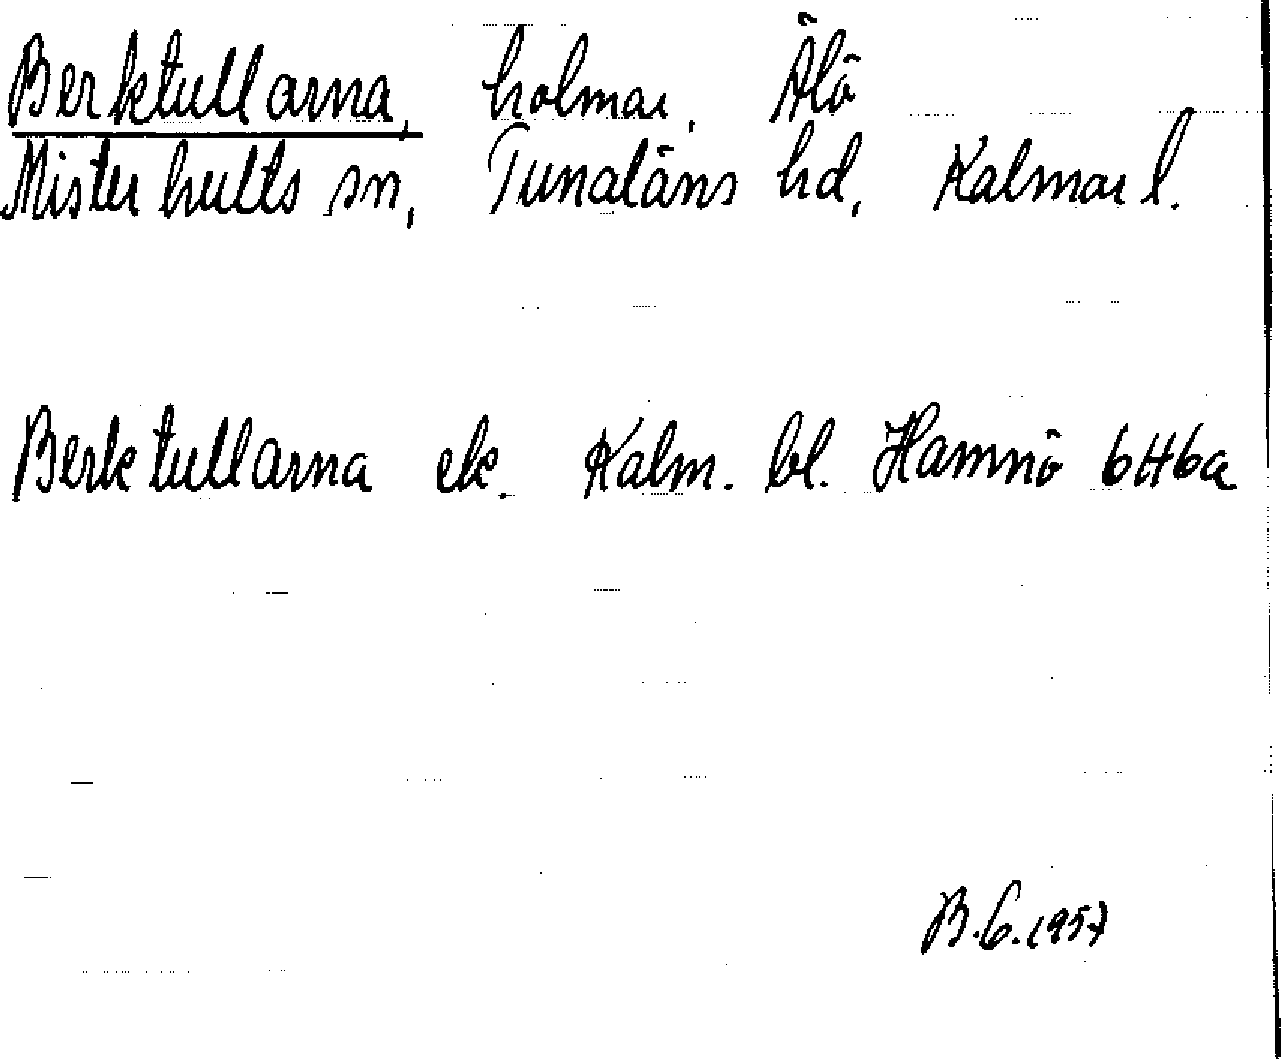 Berktullarna, holmar, Älö
Misterhults sn, Tunaläns hd, Kalmar l.
Berktullarna ek. Kalm. bl. Hamnö 6H6a
B.G. 1957